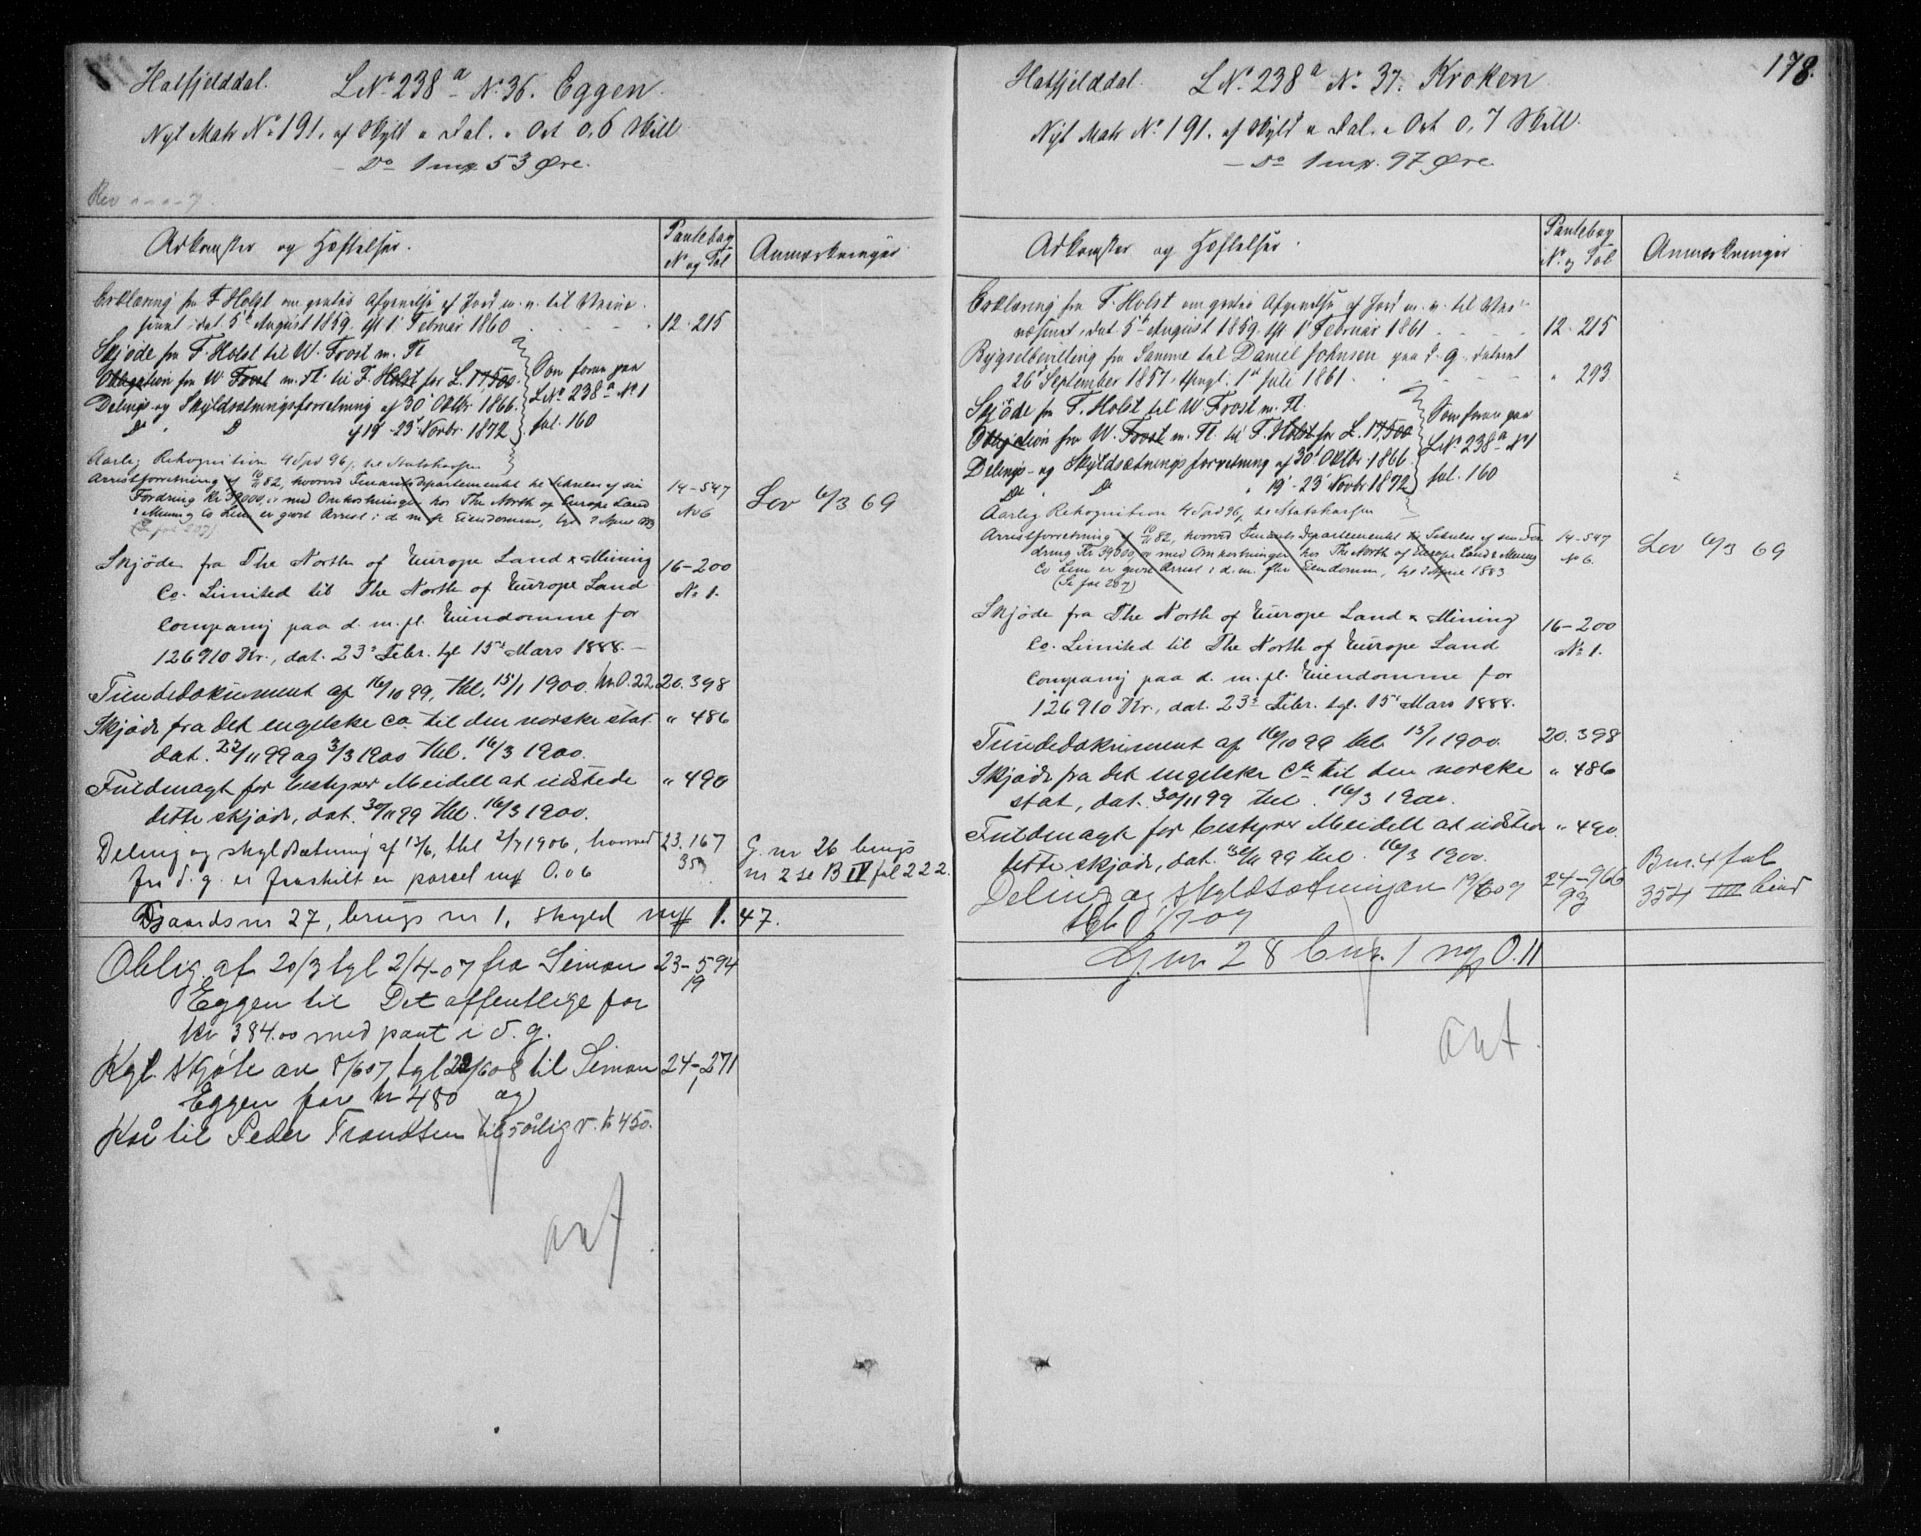 Hatfjelddal. L Nº 238 a - Nº 36. Eggen.
Nyt Matr Nº 191. af Skyld " Dal. " Ort 0,6 Skill
- Do 1 mrk 53 Øre.
Adkomster og Hæftelser.
Pantebog
Nº og Fol
Anmærkninger
Erklæring fra F. Holst om gratis Afgivelse af Jord m. v. til
dat. 5te August 1859. tgl 1ste Februar 1860
12. 215
Skjøde fra F. Holst til W. Frost m. Fl
Obligation fra W. Frost m. Fl. til F. Holst for L. 17500.
Delings- og Skyldsætningsforretning af 30te Oktbr 1866.
Do Do af 19 - 23 Novbr 1872
Som foran paa
L Nº 238 a Nº 1
fol. 160
Aarlig Rekognition 4 Spd 96 s. til Statskassen
Arrestforretning 82, hvorved Finants Departementet til Sikkerhed af sin
Fordring Kr 39000 " med Omkostninger hos The North of Europe Land
& Mining Co Lim er gjort Arrest i d. m. fl. Eiendomme, tgl 2 April 1883
14-547
Nº 6
Lov 6/3 69
Skjøde fra The North of Europe Land & Mining
Co. Limited til The North of Europe Land
Company paa d. m. fl. Eiendomme for
126910 Kr., dat. 23de Febr. tgl 15de Mars 1888.-
16-200
Nº 1.
Tiendedokument af 16/10 99, thl. 15/1 1900. kr. 0.22
20. 398
Skjøde fra det engelske Co til den norske stat.
dat. 22/11 99 og 3/3 1900 thl. 16/3 1900.
" 486
Fuldmagt for bestyrer Meidell at udstede
dette skjøde, dat. 30/11 99 thl. 16/3 1900.
" 490
Deling og skyldsætning af 13/6, thl 2/7 1906, hvorved
fra d. g. er fraskilt en parcel mrk 0.06
23. 167
35
G. nr 26 brugs
nr 2 se B IV fol 222.
Gaards nr 27, brugs nr 1, skyld mrk 1.47.
Oblig. af 20/3 tgl 2/4-07 fra Simon
Eggen til Det offentlige for
kr 384.00 med pant i d. g.
23-594
19
Kgl. skjøte av 8/6 07 tgl 22/6 08 til Simon
Eggen for kr 480 og
24-271
1
Kår til Peder Trondsen til 5 årlig v. k 450.
avf.
178.
Hatfjelddal. L Nº 238 a Nº 37. Kroken
Nyt Matr Nº 191. af Skyld " Dal. " Ort 0,7 Skill.
- Do 1 mrk. 97 Øre.
Adkomster og Hæftelser.
Pantebog
Nº og Fol
Anmærkninger
Erklæring fra F. Holst om gratis Afgivelse af Jord m. v. til
dat 5te August 1859. tgl 1ste Februar 1861
12. 215
Bygselbevilling fra Samme til Daniel Johnsen paa d. g. dateret
26de September 1857. tingl. 1ste Juli 1861.
" 293
Skjøde fra F. Holst til W. Frost m. Fl.
Obligation fra W. Frost m. Fl. til F. Holst for L. 17500
Delings- og Skyldsætningsforretning af 30te Oktbr. 1866.
Do Do " 19 - 23 Novbr 1872
Som foran paa
L Nº 238 a Nº 1
fol. 160
Aarlig Rekognition 4 Spd 96 s. til Statskassen
Arrestforretning 82, hvorved Finants Departementet til Sikkerhed af sin For-
dring Kr 39000 " med Omkostninger hos The North of Europe Land & Mining
Co Lim er gjort Arrest i d. m. fler Eiendomm, tgl 2 April 1883
(Se fol 207)
14-547
Nº 6.
Lov 6/3 69
Skjøde fra The North of Europe Land & Mining
Co. Limited til The North of Europe Land
Company paa d. m. fl. Eiendomme for
126910 Kr., dat. 23de Febr. tgl. 15de Mars 1888.
16-200
Nº 1.
Tiendedokument af 16/10 99 thl. 15/1 1900.
20. 398
Skjøde fra det engelske Co til den norske
stat, dat. 30/11 99 thl. 16/3 1900.
" 486
Fuldmagt for bestyrer Meidell at udstede
dette skjøde, dat. 30/11 99 thl. 16/3 1900.
" 490.
Deling og skyldsætningen 19/6 07
tgl. 1/7-07
24-966
93
Bnr. 4 fol
354 VIII bind
G. nr. 28 br. 1 mrk 0.11
avf.